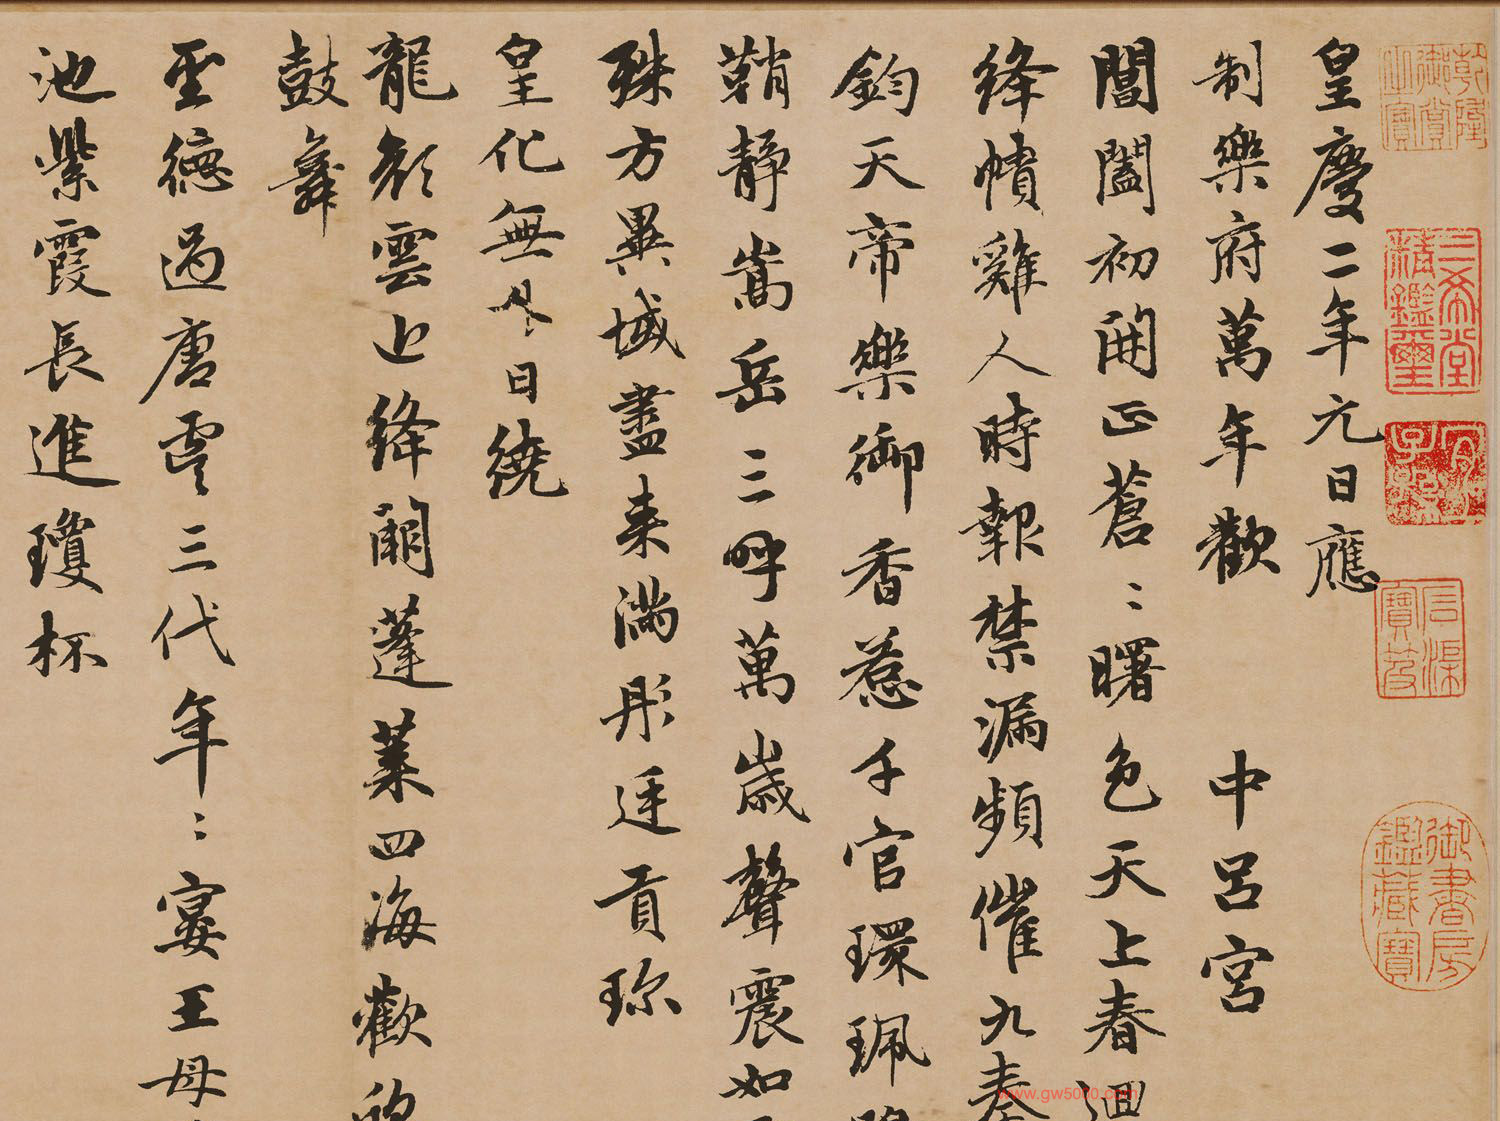 皇慶二年元日應
制樂府萬年歡 中呂宮
閶闔初開正蒼〻曙色天上春迴
絳幘雞人時報禁漏頻催九奏
鈞天帝樂御香惹千官環珮
鞘静嵩岳三呼萬歲聲震如
殊方異域盡来滿彤廷貢珎
皇化無日繞
龍顔雲近絳闕蓬萊四海歡
鼓舞
聖德過唐虞三代年〻宴王母
池紫霞長進瓊杯
乾隆御賞之寶
三希堂精鑑璽
宜子孫
御書房鑑藏寶
www.gw5000.com